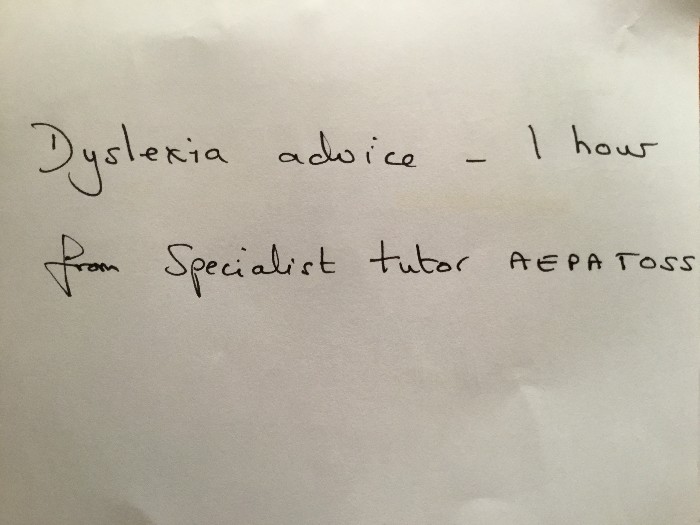 Dyslexia advice - 1 hour
from Specialist tutor AEPATOSS